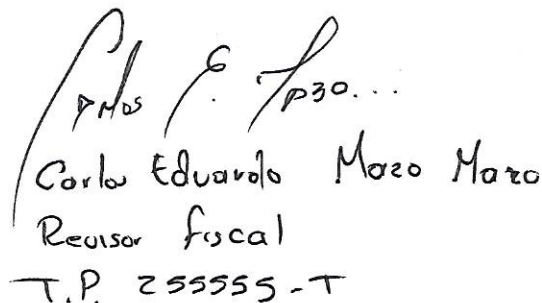 Carlos E.
Carlos Eduardo Mazo Mazo
Revisor fiscal
T.P. 255555-T